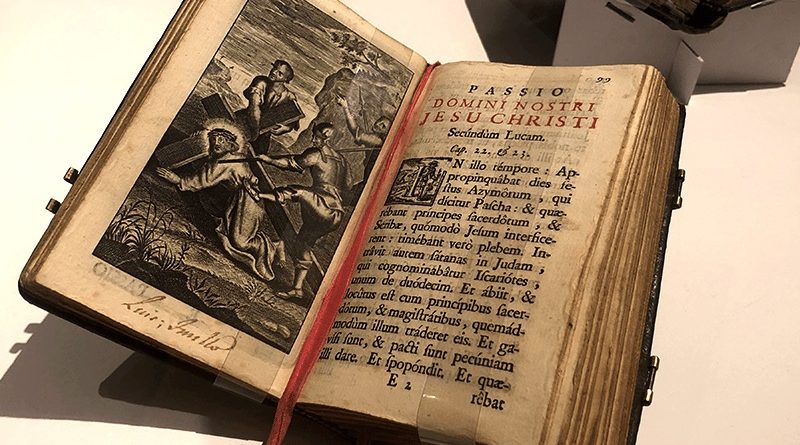 99
PASSIO
DOMINI NOSTRI
JESU CHRISTI
Secundùm Lucam.
Cap. 22. & 23.
IN illo témpore: Ap-
propinquâbat dies fe-
stus Azymôrum, qui
dícitur Pascha: & quæ-
rébant príncipes sacerdôtum, &
Scribæ, quómodò Jesum interfíce-
rent: timébant verò plebem. In-
trávit autem satanas in Judam,
qui cognominâbâtur Iscariótes,
unum de duódecim. Et ábiit, &
locûtus est cum princípibus sacer-
dótum, & magistrátibus, quemád-
modùm illum tráderet eis. Et ga-
vísi sunt, & pacti sunt pecúniam
illi dare. Et spopóndit. Et quæ-
E 2
rêbat